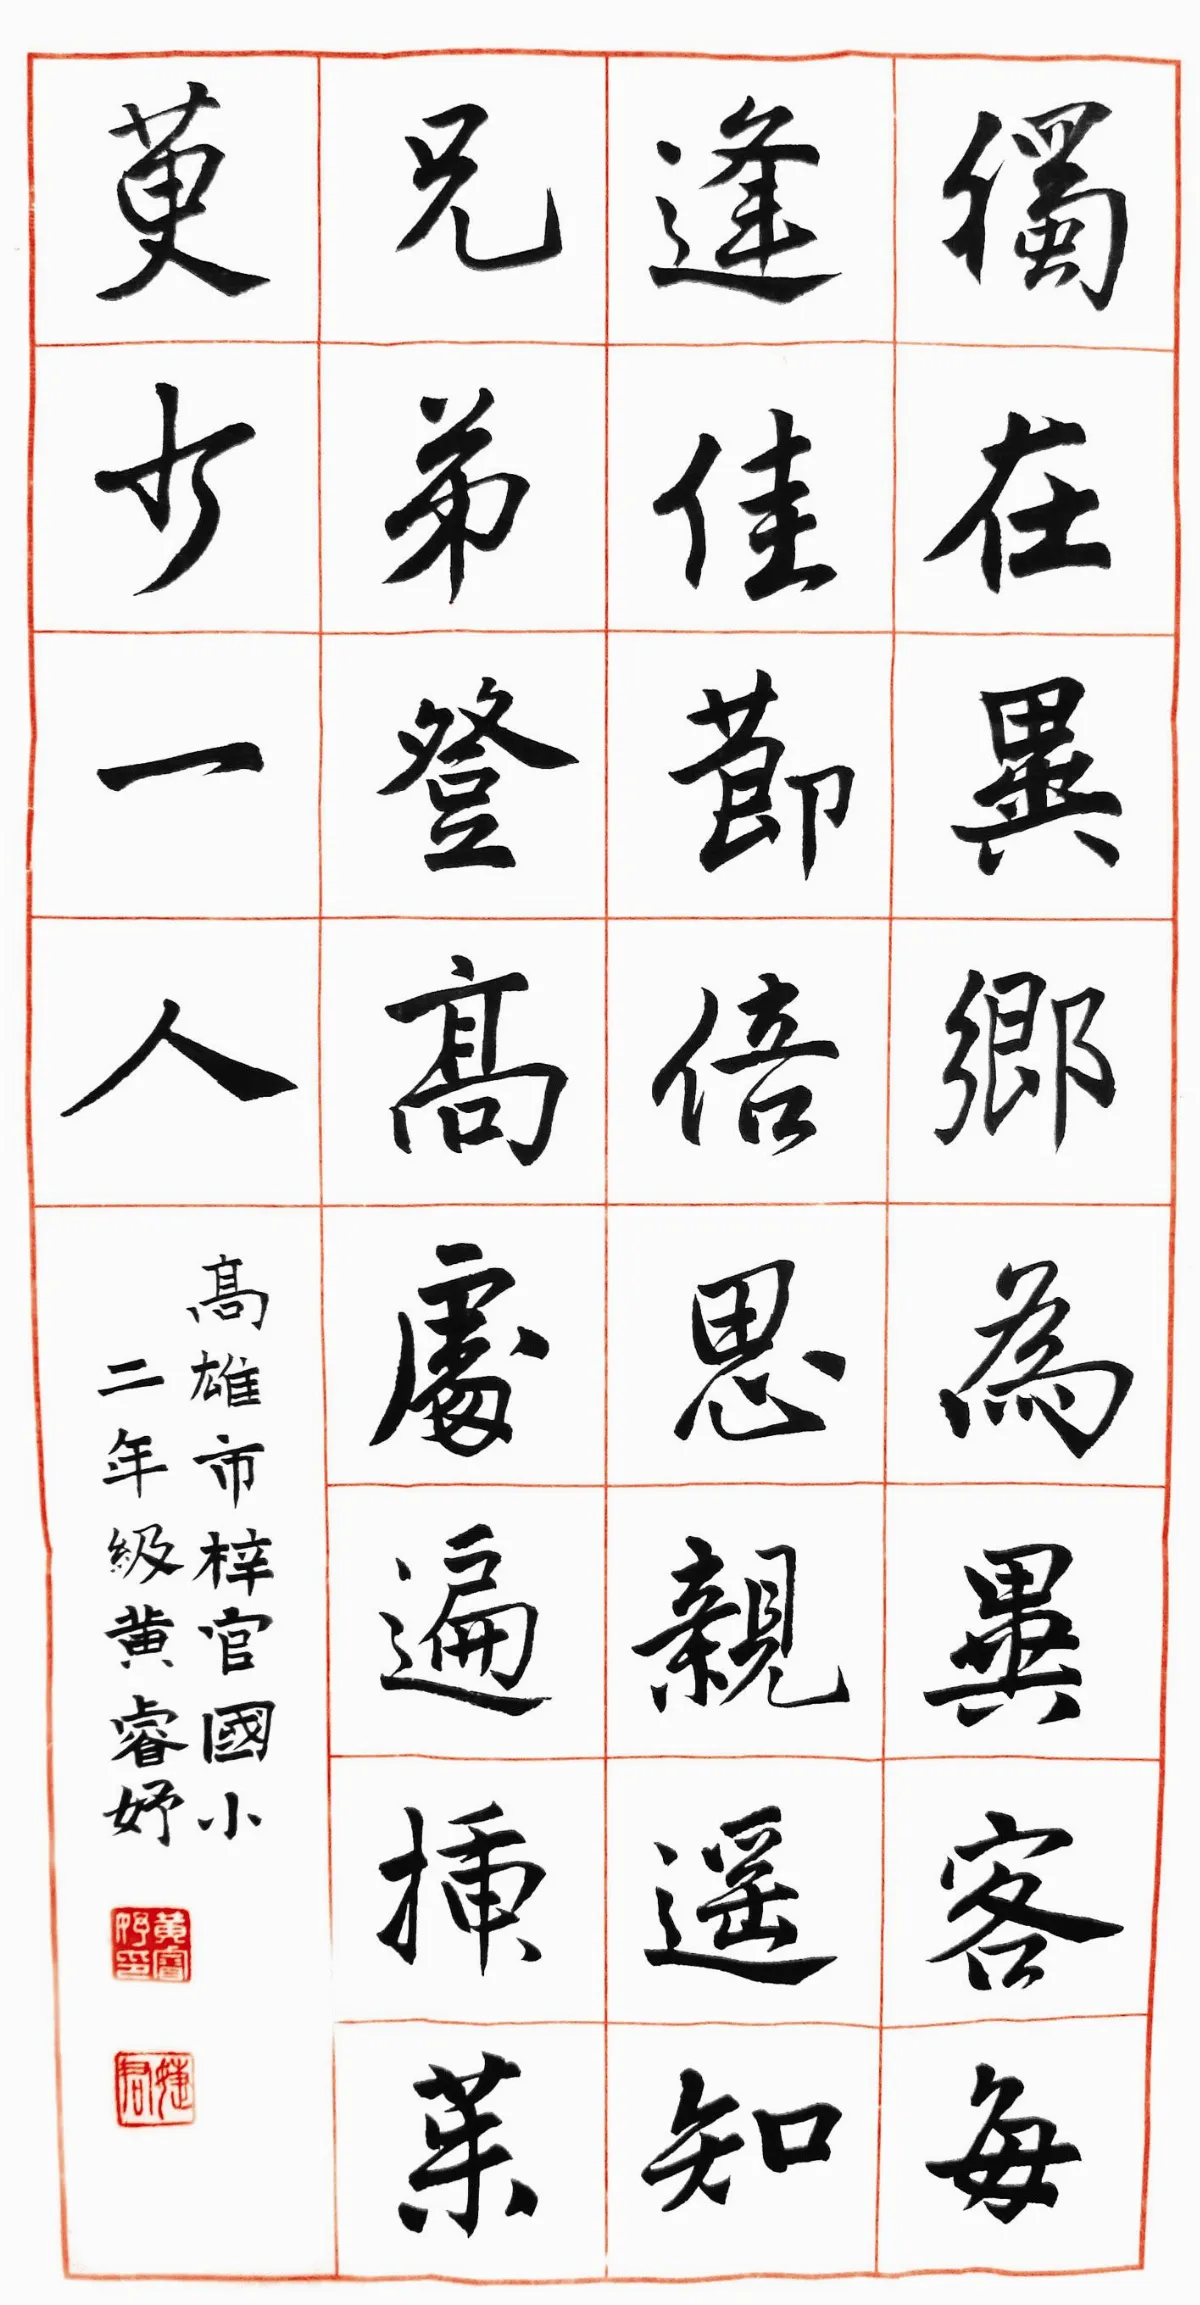 獨在異鄉為異客每
逢佳節倍思親遥知
兄弟登高處遍插茱
萸少一人
高雄市梓官國小
二年級黄睿妤
黄睿妤印
婕君